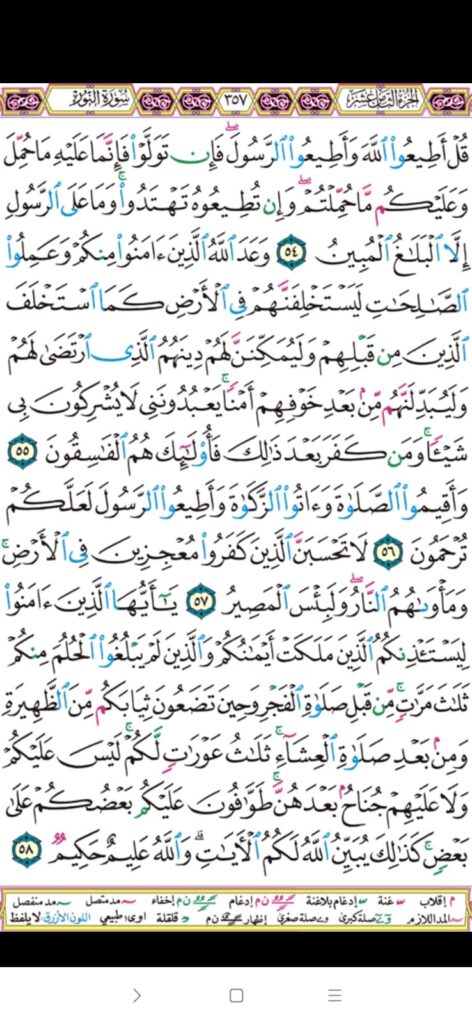 الجزء الثامن عشر ٣٥٧ سورة النور
قُلْ أَطِيعُوا۟ ٱللَّهَ وَأَطِيعُوا۟ ٱلرَّسُولَ ۖ فَإِن تَوَلَّوْا۟ فَإِنَّمَا عَلَيْهِ مَا حُمِّلَ
وَعَلَيْكُم مَّا حُمِّلْتُمْ ۖ وَإِن تُطِيعُوهُ تَهْتَدُوا۟ ۚ وَمَا عَلَى ٱلرَّسُولِ
إِلَّا ٱلْبَلَـٰغُ ٱلْمُبِينُ ٥٤ وَعَدَ ٱللَّهُ ٱلَّذِينَ ءَامَنُوا۟ مِنكُمْ وَعَمِلُوا۟
ٱلصَّـٰلِحَـٰتِ لَيَسْتَخْلِفَنَّهُمْ فِى ٱلْأَرْضِ كَمَا ٱسْتَخْلَفَ
ٱلَّذِينَ مِن قَبْلِهِمْ وَلَيُمَكِّنَنَّ لَهُمْ دِينَهُمُ ٱلَّذِى ٱرْتَضَىٰ لَهُمْ
وَلَيُبَدِّلَنَّهُم مِّنۢ بَعْدِ خَوْفِهِمْ أَمْنًا ۚ يَعْبُدُونَنِى لَا يُشْرِكُونَ بِى
شَيْـًٔا ۚ وَمَن كَفَرَ بَعْدَ ذَٰلِكَ فَأُو۟لَـٰٓئِكَ هُمُ ٱلْفَـٰسِقُونَ ٥٥
وَأَقِيمُوا۟ ٱلصَّلَوٰةَ وَءَاتُوا۟ ٱلزَّكَوٰةَ وَأَطِيعُوا۟ ٱلرَّسُولَ لَعَلَّكُمْ
تُرْحَمُونَ ٥٦ لَا تَحْسَبَنَّ ٱلَّذِينَ كَفَرُوا۟ مُعْجِزِينَ فِى ٱلْأَرْضِ ۚ
وَمَأْوَىٰهُمُ ٱلنَّارُ ۖ وَلَبِئْسَ ٱلْمَصِيرُ ٥٧ يَـٰٓأَيُّهَا ٱلَّذِينَ ءَامَنُوا۟
لِيَسْتَـْٔذِنكُمُ ٱلَّذِينَ مَلَكَتْ أَيْمَـٰنُكُمْ وَٱلَّذِينَ لَمْ يَبْلُغُوا۟ ٱلْحُلُمَ مِنكُمْ
ثَلَـٰثَ مَرَّٰتٍ ۚ مِّن قَبْلِ صَلَوٰةِ ٱلْفَجْرِ وَحِينَ تَضَعُونَ ثِيَابَكُم مِّنَ ٱلظَّهِيرَةِ
وَمِنۢ بَعْدِ صَلَوٰةِ ٱلْعِشَآءِ ۚ ثَلَـٰثُ عَوْرَٰتٍ لَّكُمْ ۚ لَيْسَ عَلَيْكُمْ
وَلَا عَلَيْهِمْ جُنَاحٌۢ بَعْدَهُنَّ ۚ طَوَّٰفُونَ عَلَيْكُم بَعْضُكُمْ عَلَىٰ
بَعْضٍ ۚ كَذَٰلِكَ يُبَيِّنُ ٱللَّهُ لَكُمُ ٱلْـَٔايَـٰتِ ۗ وَٱللَّهُ عَلِيمٌ حَكِيمٌ ٥٨
م إقلاب غنة إدغام بلاغنة ن م إدغام ن م إخفاء مد متصل مد منفصل
المد اللازم صلة كبرى صلة صغرى إظهار ن م قلقلة اوى طبيعي اللون الأزرق لا يلفظ